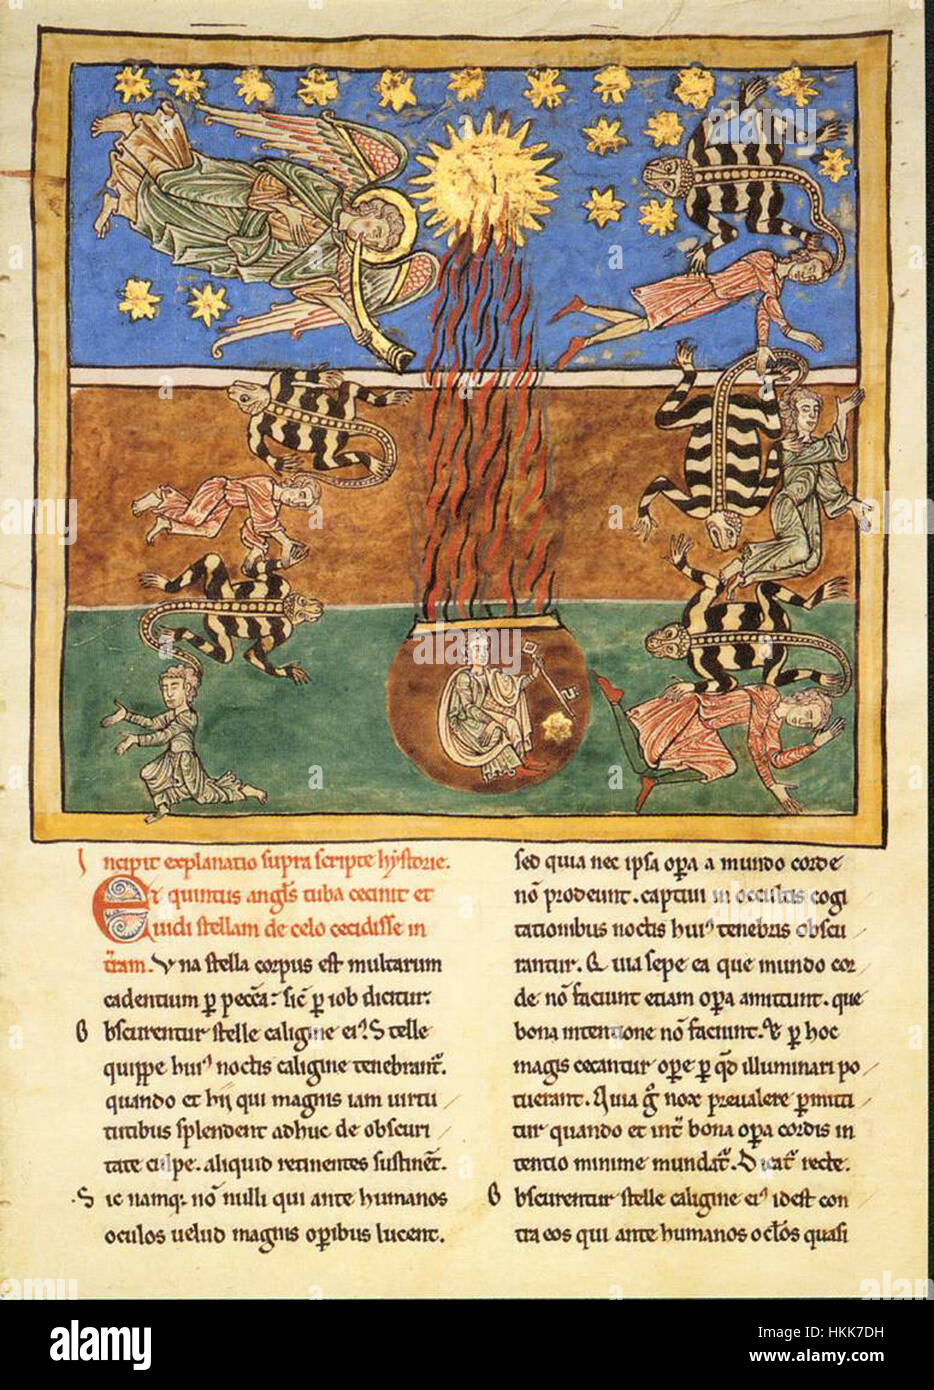 Incipit explanatio supra scripte hystorie.
Et quintus angl's tuba cecinit et
vidi stellam de celo cecidisse in
t'ram. Vna stella corpus est multarum
cadentium p pecca: sic p iob dicitur.
Obscurentur stelle caligine ei' Stelle
quippe hui' noctis caligine tenebrant'.
quando et hij qui magnis iam uirtu
tutibus splendent adhuc de obscuri
tate culpe. aliquid retinentes sustinet.
Sic namq. nō nulli qui ante humanos
oculos uelud magnis op̄ibus lucent.
sed quia nec ipsa op̄a a mundo corde
nō prodeunt. captiui in occultis cogi
tationibus noctis hui' tenebris obscu
rantur. Et uia sepe ea que mundo cor
de nō faciunt etiam op̄a amittunt. que
bona intentione nō faciunt. Et p hoc
magis cecantur ope p qd illuminari po
tuerant. Quia g nox preualere pmitti
tur quando et int' bona op̄a cordis in
tentio minime mundat'. Dicat' recte.
Obscurentur stelle caligine ei' id est con
tra eos qui ante humanos oclos quasi
alamy
Image ID: HKK7DH
www.alamy.com